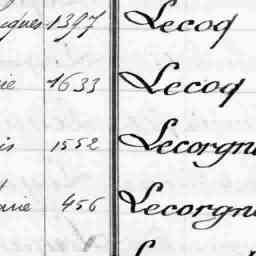 ques 1397 Lecoq
ie 1633 Lecoq
is 1552 Lecorgn
arie 456 Lecorgn